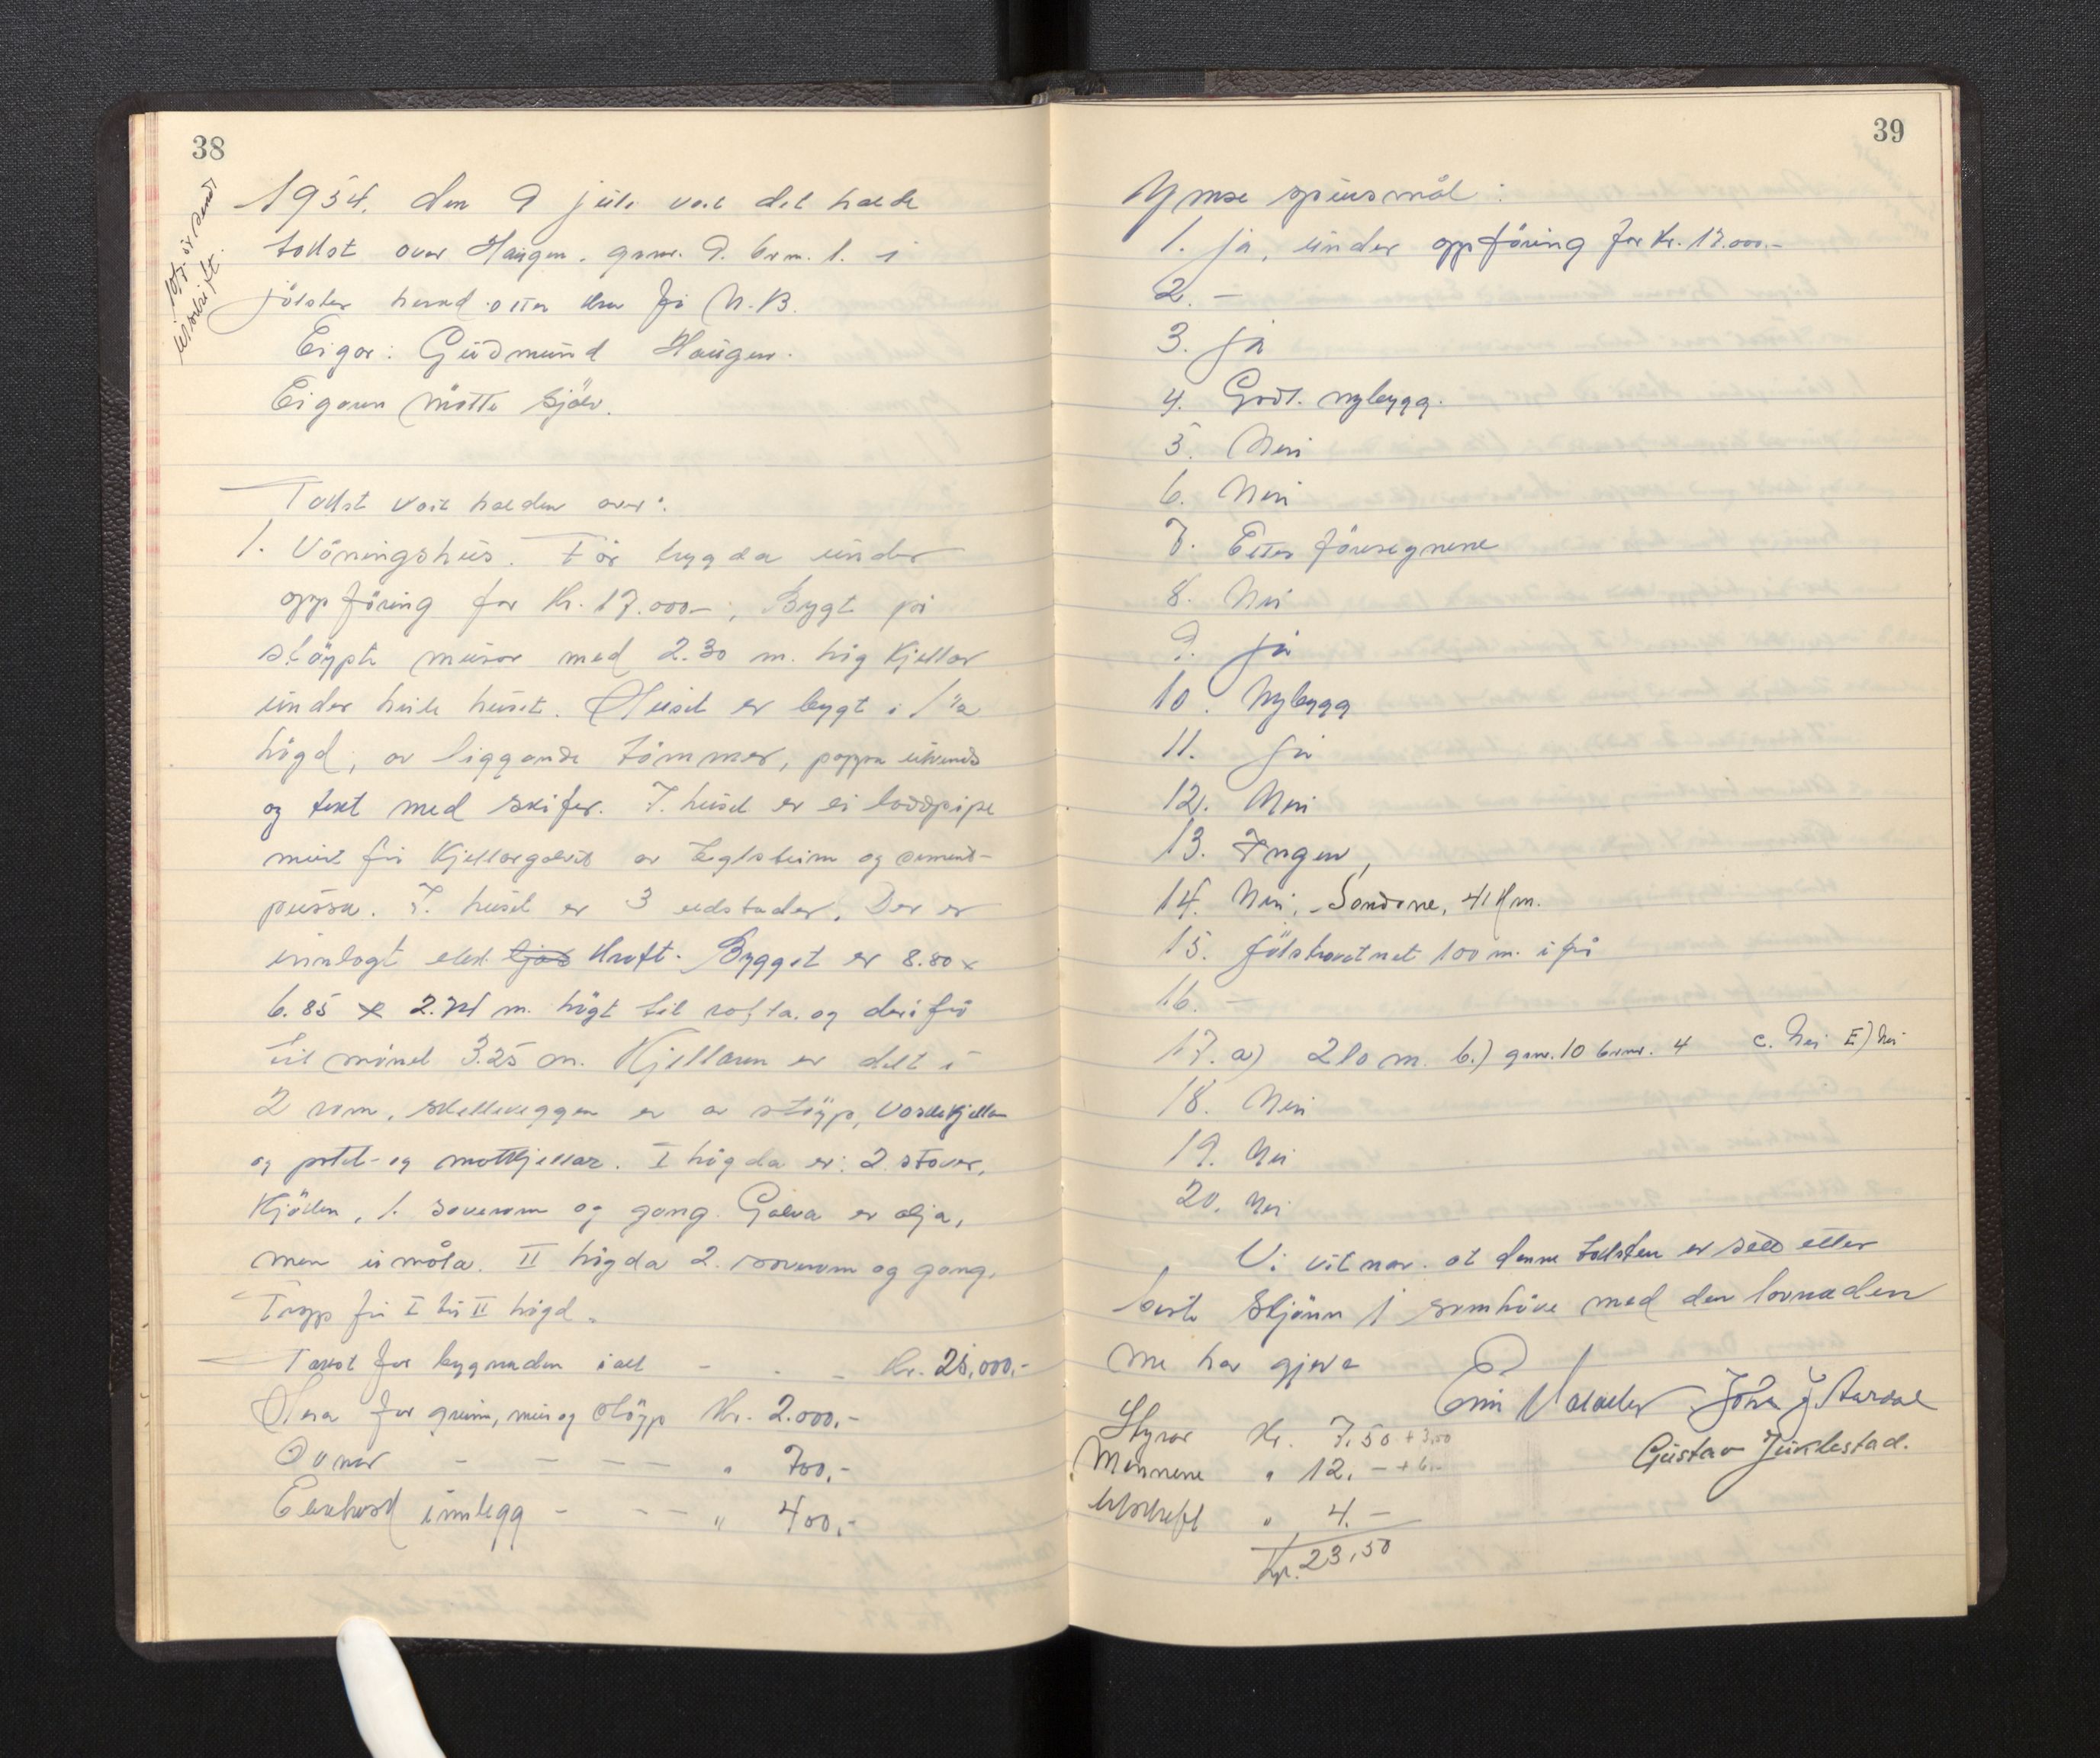 38
10/7 er sendt
utskrift.
1954. den 9 juli vart det halde
takst over Haugen, gnr. 9. brnr. 1. i
Jölster herad etter krav frå N.B.
Eigar: Gudmund Haugen.
Eigaren møtte sjölv.
Takst vart halden over:
1. Våningshus. Før trygda under
oppföring for Kr. 17.000.–, Bygt på
stöypte murar med 2.30 m. høg kjellar
under heile huset. Huset er bygt i 1 ½
högd, av liggande tömmer, pappa utvendig
og tekt med skifer. I huset er ei loddpipe
murt frå kjellargolvet av teglstein og sement-
pussa. I huset er 3 eldstader. Der er
innlagt elek. ljos kraft. Bygget er 8.80 x
6.85 x 2.71 m. högt til rafta, og derifrå
til mönet 3.25 m. Kjellaren er delt i
2 rom, skilleveggen er av støyp, vaskekjellar
og potet- og matkjellar. I högda er: 2 stover,
Kjöken, 1. soverom og gang. Golva er olja,
men umåla. II högda 2. soverom og gang.
Trapp frå I til II högd.
Takst for bygnaden i alt – – – Kr. 25,000.–
Herav for grunn, mur og støyp Kr. 2.000,–
Ovnar – – – – " 700,–
Elektrisk innlegg – – – " 400,–
39
Ymse spursmål:
1. Ja, under oppföring for kr. 17.000.–
2. –
3. Ja
4. Godt. nybygg.
5. Nei
6. Nei
7. Etter föresegnene
8. Nei
9. Ja
10. Nybygg
11. Ja
12. Nei
13. Ingen,
14. Nei, Sandane, 41 Km.
15. Jölstravatnet 100 m. ifrå
16. –
17. a) 210 m. b.) gnr. 10 brnr. 4 c. Nei E) Nei
18. Nei
19. Nei
20. Nei
Vi vitnar at denne taksten er sett etter
beste skjönn i samhöve med den lovnaden
me har gjeve
Jóna J. Aardal
Gustav Juklestad.
Styrar Kr. 7.50 + 3,50
Mennene " 12. – + 6.–
Utskrift " 4. –
Kr. 23,50